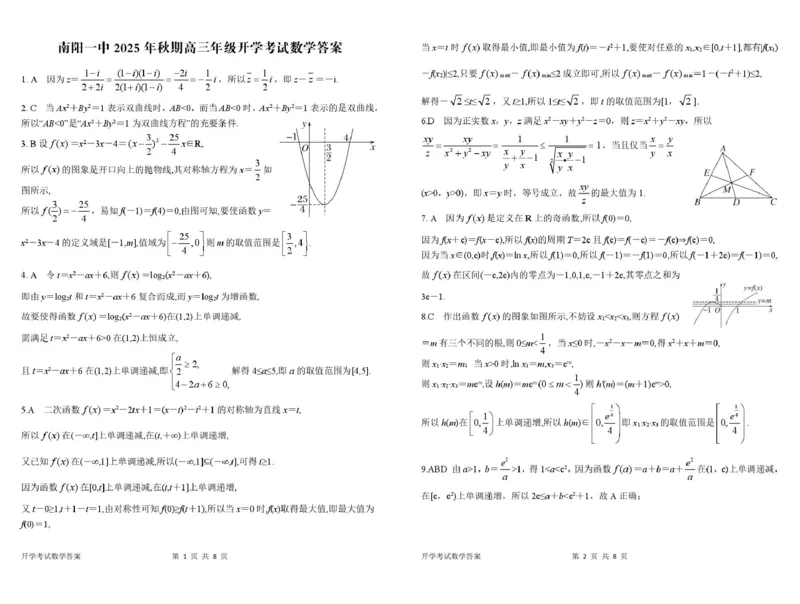 南阳一中 2025 年秋期高三年级开学考试数学答案
1. A 因为z= (1-i)/(2+2i) = (1-i)(1-i)/(2(1+i)(1-i)) = -2i/4 = -1/2 i，所以 z̄ = 1/2 i，即z- z̄ =-i.
2. C 当Ax²+By²=1 表示双曲线时，AB<0，而当AB<0 时，Ax²+By²=1 表示的是双曲线，
所以“AB<0”是“Ax²+By²=1 为双曲线方程”的充要条件.
3. B 设 f(x)=x²-3x-4=(x-3/2)²-25/4 x∈R,
所以 f(x)的图象是开口向上的抛物线,其对称轴方程为x=3/2 如
图所示,
所以 f(3/2)=-25/4，易知f(-1)=f(4)=0,由图可知,要使函数y=
-1 O 3/2 4 x y -25/4
x²-3x-4的定义域是[-1,m],值域为[-25/4,0]则m的取值范围是[3/2,4].
4. A 令t=x²-ax+6,则f(x)=log₂(x²-ax+6),
即由y=log₂t和t=x²-ax+6复合而成,而y=log₂t为增函数,
故要使得函数f(x)=log₂(x²-ax+6)在(1,2)上单调递减,
需满足t=x²-ax+6>0在(1,2)上恒成立,
且t=x²-ax+6在(1,2)上单调递减,即{a/2≥2, 4-2a+6≥0, 解得4≤a≤5,即a的取值范围为[4,5].
5.A 二次函数f(x)=x²-2tx+1=(x-t)²-t²+1的对称轴为直线x=t,
所以f(x)在(-∞,t]上单调递减,在(t,+∞)上单调递增,
又已知f(x)在(-∞,1]上单调递减,所以(-∞,1]⊆(-∞,t],可得t≥1.
因为函数f(x)在[0,t]上单调递减,在(t,t+1]上单调递增,
又t-0≥1,t+1-t=1,由对称性可知f(0)≥f(t+1),所以当x=0时,f(x)取得最大值,即最大值为
f(0)=1,
开学考试数学答案 第 1 页 共 8 页
当x=t时f(x)取得最小值,即最小值为f(t)=-t²+1,要使对任意的x₁,x₂∈[0,t+1],都有|f(x₁)
-f(x₂)|≤2,只要f(x)max-f(x)min≤2成立即可,所以f(x)max-f(x)min=1-(-t²+1)≤2,
解得-√2≤t≤√2，又t≥1,所以1≤t≤√2，即t的取值范围为[1，√2].
6.D 因为正实数x，y，z满足x²-xy+y²-z=0，则z=x²+y²-xy，所以
xy/z = xy/(x²+y²-xy) = 1/(x/y+y/x-1) ≤ 1/(2√(x/y·y/x)-1) =1，当且仅当 x/y = y/x
(x>0，y>0)，即x=y时，等号成立，故xy/z的最大值为1.
A E F M B D C
7. A 因为f(x)是定义在R上的奇函数,所以f(0)=0,
因为f(x+e)=f(x-e),所以f(x)的周期T=2e且f(e)=f(-e)=-f(e)⇒f(e)=0,
因为当x∈(0,e)时,f(x)=ln x,所以f(1)=0,所以f(-1)=-f(1)=0,所以f(-1+2e)=f(-1)=0,
故f(x)在区间(-e,2e)内的零点为-1,0,1,e,-1+2e,其零点之和为
3e-1.
y y=f(x) 1/4 y=m -1 O 1 x
8.C 作出函数f(x)的图象如图所示,不妨设x₁<x₂<x₃,则方程f(x)
=m有三个不同的根,则0≤m<1/4，当x≤0时,-x²-x-m=0,得x²+x+m=0,
则x₁·x₂=m；当x>0时,ln x₃=m,x₃=eᵐ,
则x₁·x₂·x₃=meᵐ,设h(m)=meᵐ(0≤m<1/4)则h′(m)=(m+1)eᵐ>0,
所以h(m)在[0,1/4)上单调递增,所以h(m)∈[0,e^(1/4)/4)即x₁·x₂·x₃的取值范围是[0,e^(1/4)/4).
9.ABD 由a>1，b=e²/a>1，得1<a<e²，因为函数f(a)=a+b=a+e²/a在(1，e)上单调递减，
在[e，e²)上单调递增，所以2e≤a+b<e²+1，故A正确；
开学考试数学答案 第 2 页 共 8 页